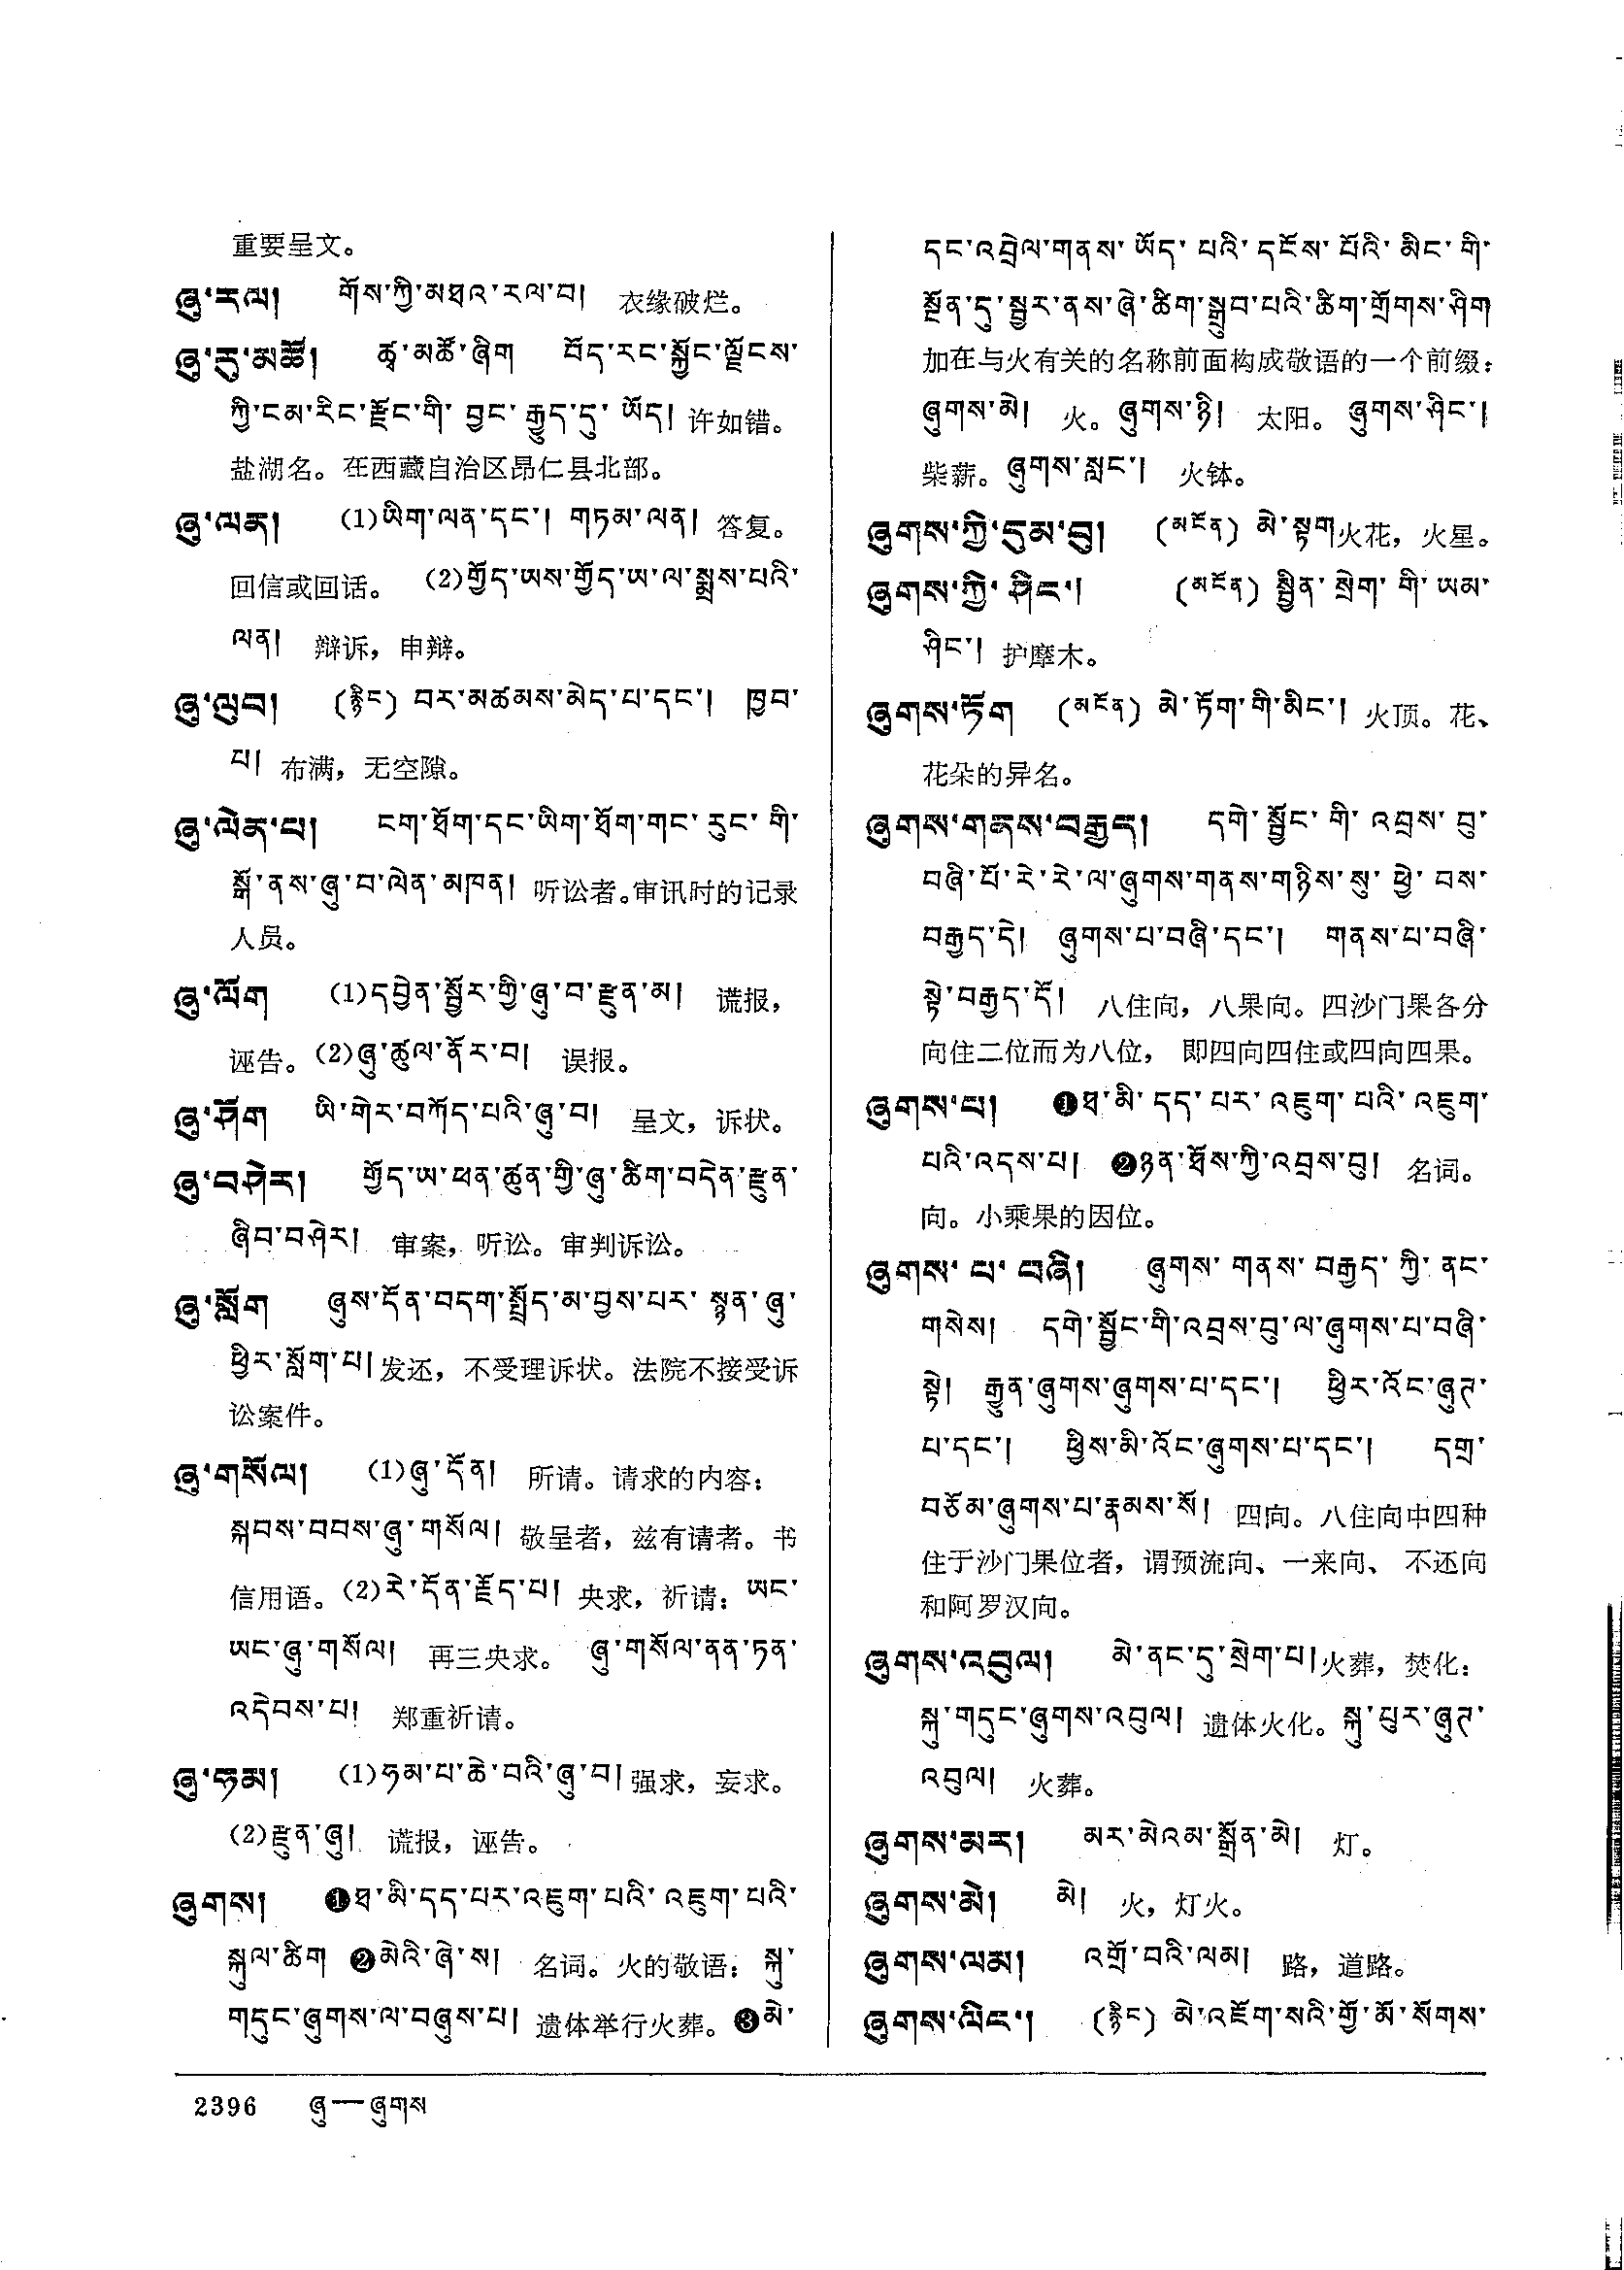 重要呈文。
ཞུ་རལ། གོས་ཀྱི་མཐའ་རལ་བ། 衣缘破烂。
ཞུ་རུ་མཚོ། ཚྭ་མཚོ་ཞིག བོད་རང་སྐྱོང་ལྗོངས་
ཀྱི་ངམ་རིང་རྫོང་གི་ བྱང་ རྒྱུད་དུ་ ཡོད། 许如错。
盐湖名。在西藏自治区昂仁县北部。
ཞུ་ལན། (1)ཡིག་ལན་དང་། གཏམ་ལན། 答复。
回信或回话。 (2)གྱོད་ཡས་གྱོད་ཡ་ལ་སྨྲས་པའི་
ལན། 辩诉，申辩。
ཞུ་ལུབ། (རྙིང) བར་མཚམས་མེད་པ་དང་། ཁྱབ་
པ། 布满，无空隙。
ཞུ་ལེན་པ། ངག་ཐོག་དང་ཡིག་ཐོག་གང་ རུང་ གི་
སྒོ་ནས་ཞུ་བ་ལེན་མཁན། 听讼者。审讯时的记录
人员。
ཞུ་ལོག (1)དབྱེན་སྦྱོར་གྱི་ཞུ་བ་རྫུན་མ། 谎报，
诬告。(2)ཞུ་ཚུལ་ནོར་བ། 误报。
ཞུ་ཤོག ཡི་གེར་བཀོད་པའི་ཞུ་བ། 呈文，诉状。
ཞུ་བཤེར། གྱོད་ཡ་ཕན་ཚུན་གྱི་ཞུ་ཚིག་བདེན་རྫུན་
ཞིབ་བཤེར། 审案，听讼。审判诉讼。
ཞུ་སློག ཞུས་དོན་བདག་སྤྲོད་མ་བྱས་པར་ སྙན་ ཞུ་
ཕྱིར་སློག་པ། 发还，不受理诉状。法院不接受诉
讼案件。
ཞུ་གསོལ། (1)ཞུ་དོན། 所请。请求的内容：
སྐབས་བབས་ཞུ་གསོལ། 敬呈者，兹有请者。书
信用语。(2)རེ་དོན་རྗོད་པ། 央求，祈请：ཡང་
ཡང་ཞུ་གསོལ། 再三央求。 ཞུ་གསོལ་ནན་ཏན་
འདེབས་པ། 郑重祈请。
ཞུ་ཧམ། (1)ཧམ་པ་ཆེ་བའི་ཞུ་བ། 强求，妄求。
(2)རྫུན་ཞུ། 谎报，诬告。
ཞུགས། ❶ཐ་མི་དད་པར་འཇུག་པའི་ འཇུག་པའི་
སྐུལ་ཚིག ❷མེའི་ཞེ་ས། 名词。火的敬语：སྐུ་
གདུང་ཞུགས་ལ་བཞུས་པ། 遗体举行火葬。❸མེ་
དང་འབྲེལ་གནས་ ཡོད་ པའི་ དངོས་ པོའི་ མིང་ གི་
སྔོན་དུ་སྦྱར་ནས་ཞེ་ཚིག་སྒྲུབ་པའི་ཚིག་གྲོགས་ཤིག
加在与火有关的名称前面构成敬语的一个前缀：
ཞུགས་མེ། 火。ཞུགས་ཉི། 太阳。ཞུགས་ཤིང་།
柴薪。ཞུགས་སླང་། 火钵。
ཞུགས་ཀྱི་དུམ་བུ། (མངོན) མེ་སྟག火花，火星。
ཞུགས་ཀྱི་ ཤིང་། (མངོན) སྦྱིན་ སྲེག་ གི་ ཡམ་
ཤིང་། 护摩木。
ཞུགས་ཏོག (མངོན) མེ་ཏོག་གི་མིང་། 火顶。花、
花朵的异名。
ཞུགས་གནས་བརྒྱད། དགེ་ སྦྱོང་ གི་ འབྲས་ བུ་
བཞི་པོ་རེ་རེ་ལ་ཞུགས་གནས་གཉིས་སུ་ ཕྱེ་ བས་
བརྒྱད་དེ། ཞུགས་པ་བཞི་དང་། གནས་པ་བཞི་
སྟེ་བརྒྱད་དོ། 八住向，八果向。四沙门果各分
向住二位而为八位， 即四向四住或四向四果。
ཞུགས་པ། ❶ཐ་མི་ དད་ པར་ འཇུག་ པའི་ འཇུག་
པའི་འདས་པ། ❷ཉན་ཐོས་ཀྱི་འབྲས་བུ། 名词。
向。小乘果的因位。
ཞུགས་ པ་ བཞི། ཞུགས་ གནས་ བརྒྱད་ ཀྱི་ ནང་
གསེས། དགེ་སྦྱོང་གི་འབྲས་བུ་ལ་ཞུགས་པ་བཞི་
སྟེ། རྒྱུན་ཞུགས་ཞུགས་པ་དང་། ཕྱིར་འོང་ཞུཊ་
པ་དང་། ཕྱིས་མི་འོང་ཞུགས་པ་དང་། དགྲ་
བཅོམ་ཞུགས་པ་རྣམས་སོ། 四向。八住向中四种
住于沙门果位者，谓预流向、一来向、 不还向
和阿罗汉向。
ཞུགས་འབུལ། མེ་ནང་དུ་སྲེག་པ། 火葬，焚化：
སྐུ་གདུང་ཞུགས་འབུལ། 遗体火化。སྐུ་པུར་ཞུཊ་
འབུལ། 火葬。
ཞུགས་མར། མར་མེའམ་སྒྲོན་མེ། 灯。
ཞུགས་མེ། མེ། 火，灯火。
ཞུགས་ལམ། འགྲོ་བའི་ལམ། 路，道路。
ཞུགས་ལིང་། (རྙིང) མེ་འཇོག་སའི་གྱོ་མོ་སོགས་
2396 ཞུ—ཞུགས